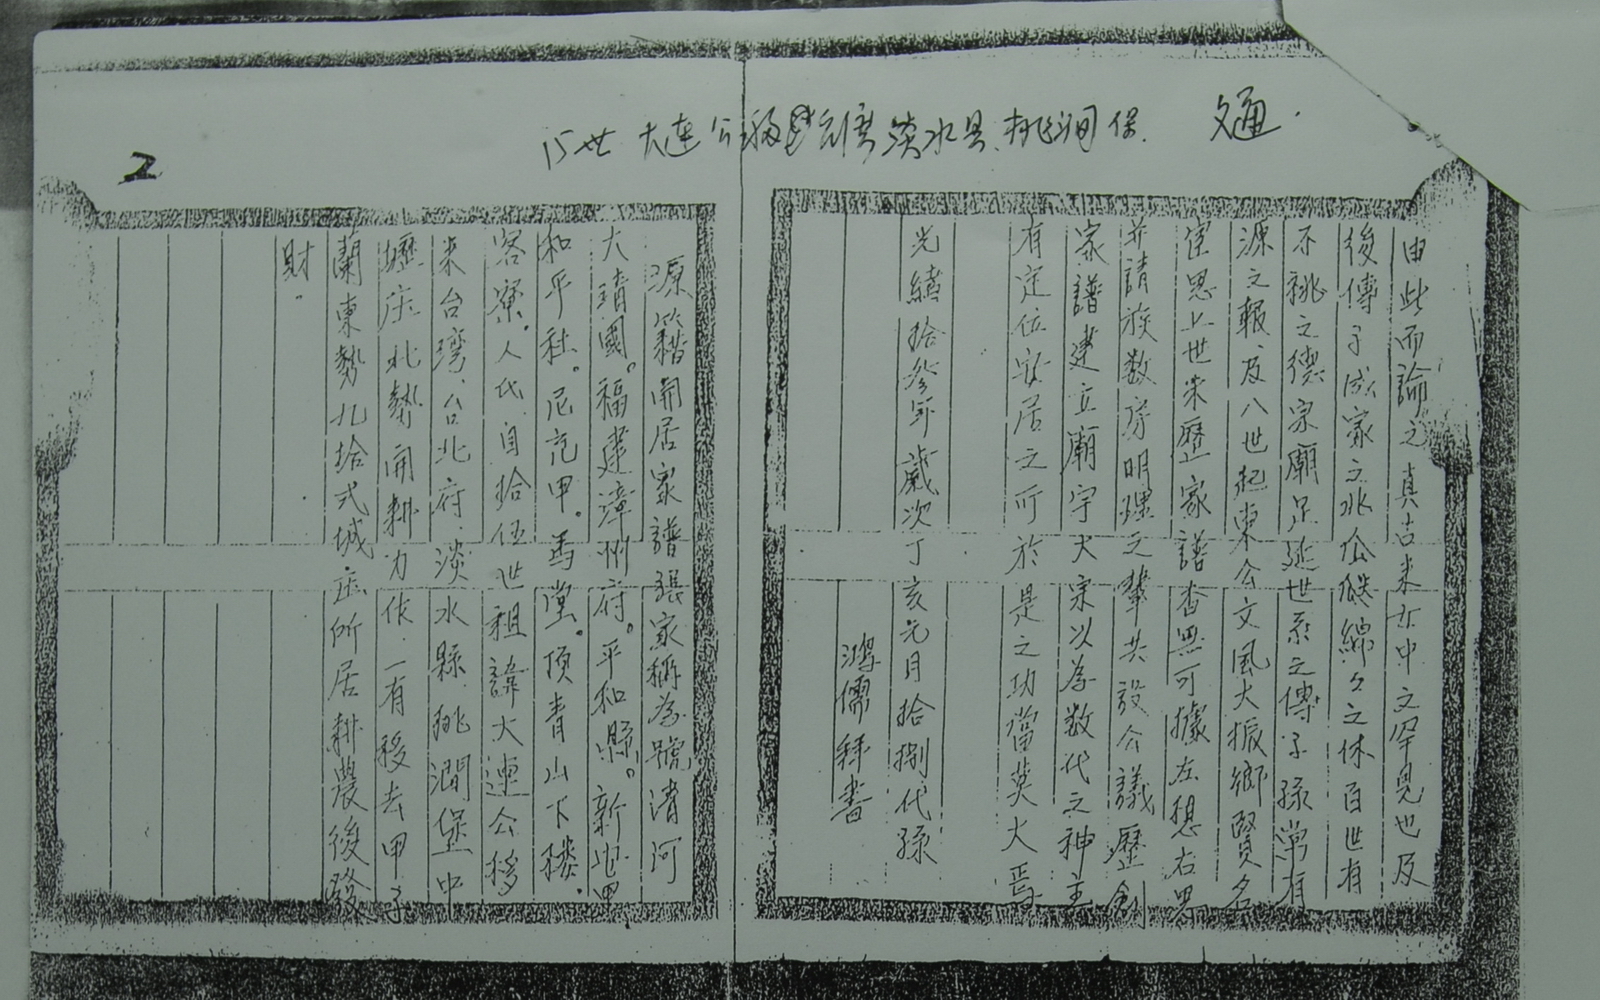 文通.
15世 大連公移台湾淡水县.桃涧保.
2
由此而論之真古来女中之罕見也及
後傳子成家之兆瓜瓞綿々之休百世有
不祧之德宗廟足延世系之傳子孫常有
源之報.及八世起東公文風大振鄉賢名
宦思上世来歷家譜查無可據左想右思
并請族数房明理之輩共設公議歷創
家譜建立廟宇大宗以為数代之神主
有定位安居之所於是之功當莫大焉
光緒拾参年歲次丁亥元月拾捌代孫
鴻儒拜書
源籍開居家譜張家稱為號清河
大靖國。福建漳州府。平和縣。新地里
和平社。尼范甲。馬堂。頂青山下楼.
客寮。人氏.自拾伍世祖諱大連公移
来台灣.台北府.淡水縣.桃澗堡中
壢庄北勢開耕力作.一有移去甲子
蘭東勢九拾弍城庄所居耕農後發
財.